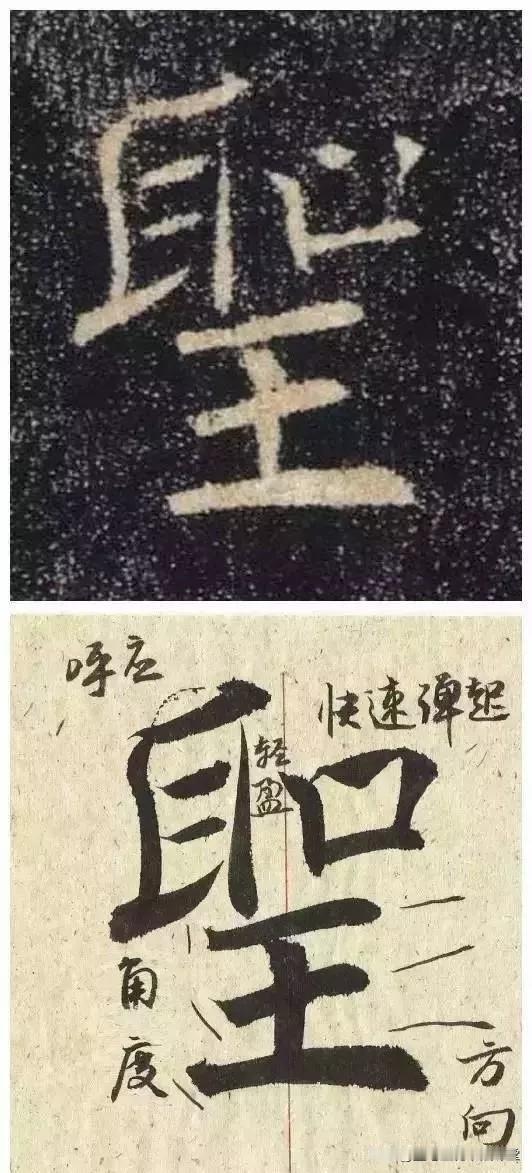 聖
呼应
快速弹起
轻盈
聖
角度
方向